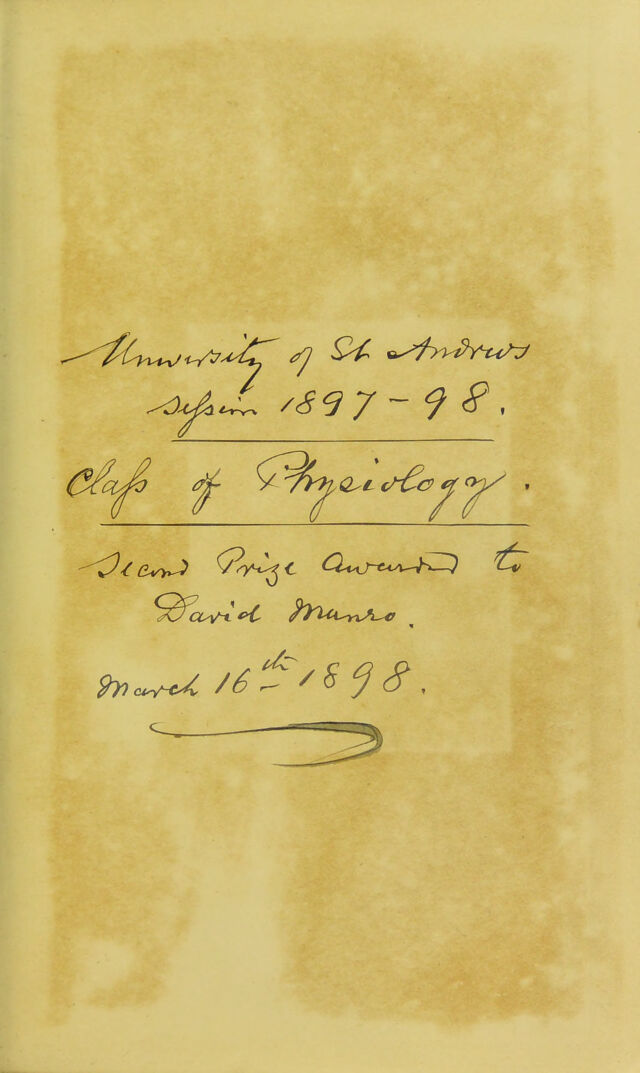 University of St Andrews
Seſsion 1897-98.
Claſs of Physiology.
Second Prize Awarded to
David Munro.
March 16th 1898.